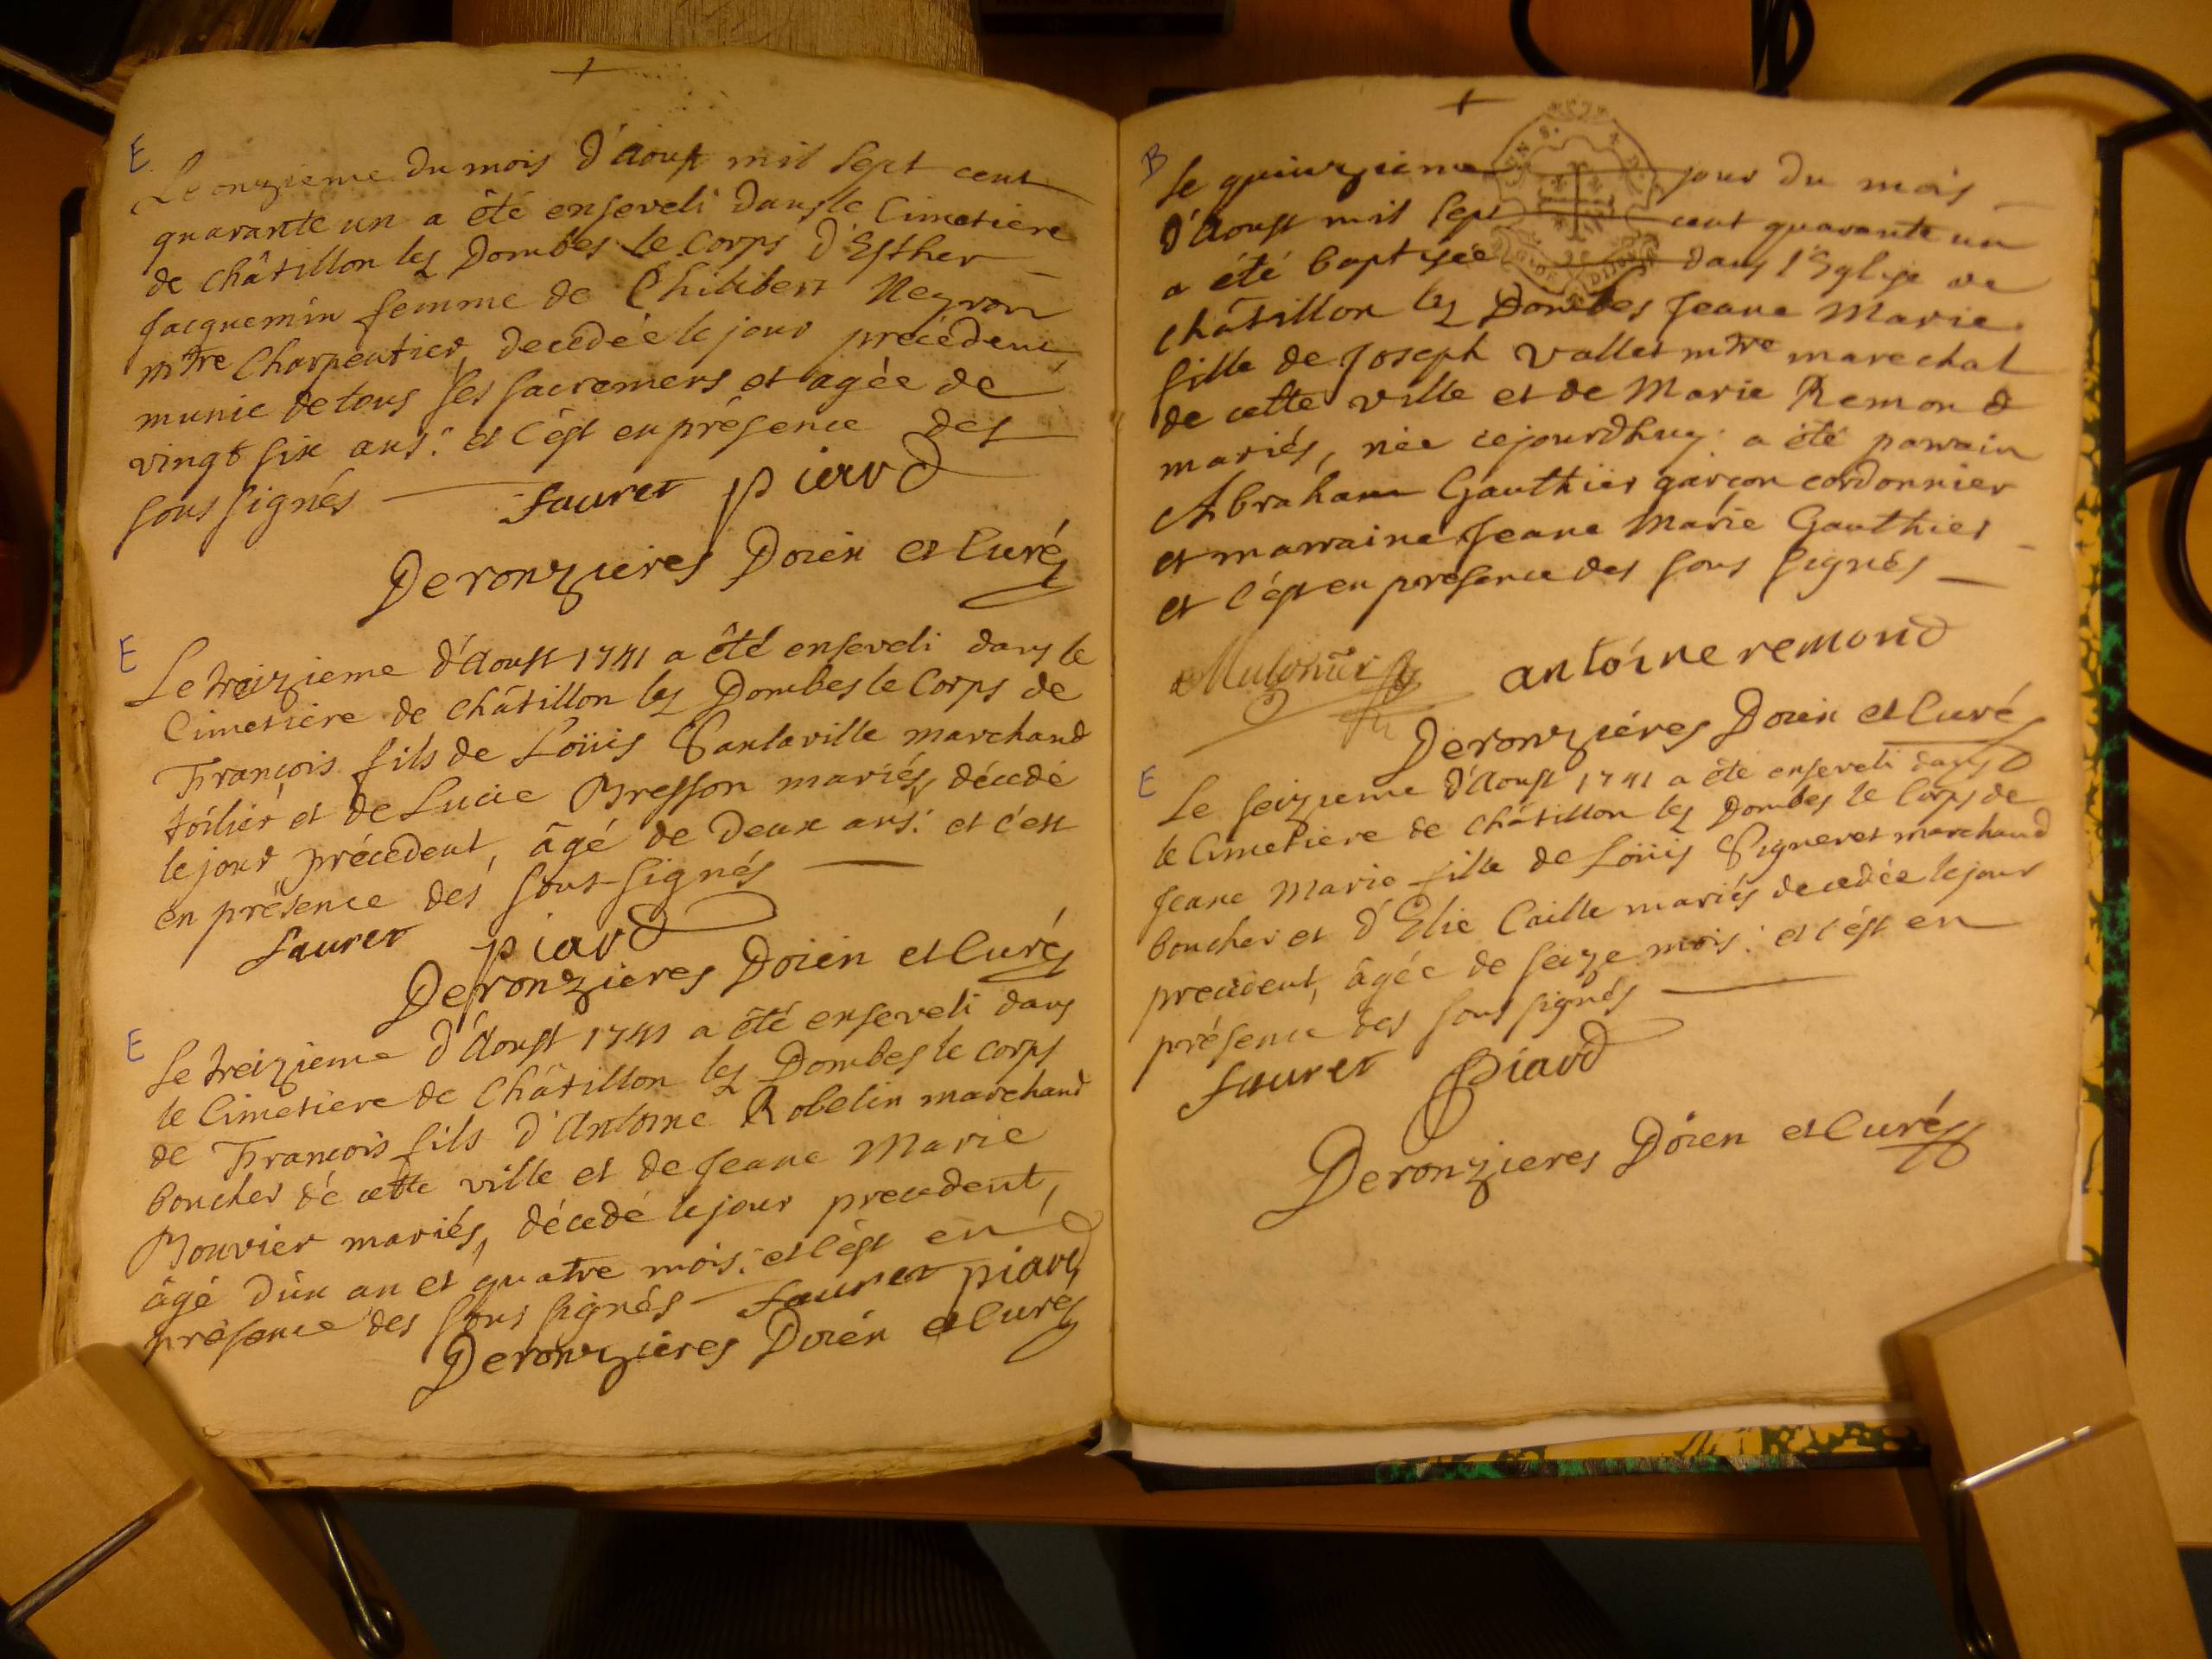 E
Le onzieme du mois d'Aoust mil sept cent
quarante un a êté enseveli dans le Cimetiere
de châtillon les Dombes le Corps d'Esther
Jacquemin femme de Philibert Neyron
mtre Charpentier, decedée le jour précédent
munie de tous ses sacremens et agée de
vingt six ans: et c'est en présence des
sous signés
faurer piard
Deronzieres Doien et Curé
E
Le treizieme d'Aoust 1741 a êté enseveli dans le
Cimetière de châtillon les Dombes le Corps de
François fils de Loüis Santaville marchand
toilier et de Lucie Bresson mariés, décedé
le jour précedent, âgé de deux ans: et c'est
en présence des sous-signés
faurer piard
Deronzieres Doien et Curé
E
Le treizieme d'Aoust 1741 a êté enseveli dans
le Cimetiere de Châtillon les Dombes le corps
de François fils d'Antoine Robelin marchand
boucher de cette ville et de Jeane Marie
Bouvier mariés, décedé le jour precedent,
âgé d'un an et quatre mois: et c'est en
présence des sous signés faurer piard
Deronzieres Doien et Curé
B
Le quinzieme jour du mois
d'Aoust mil sept cent quarante un
a été baptisée dans l'Eglise de
châtillon les Dombes Jeane Marie
fille de Joseph Vallet mtre marechal
de cette ville et de Marie Remond
mariés, née cejourdhuy: a êté parrain
Abraham Gauthier garçon cordonnier
et marraine Jeane Marie Gauthier
et c'est en présence des sous signés
antoine remond
Deronziéres Doien et Curé
E
Le seizieme d'Aoust 1741 a êté enseveli dans
le Cimetiere de châtillon les Dombes le Corps de
Jeane Marie fille de Loüis Pigneret marchand
boucher et d'Elie Caille mariés decedée le jour
precedent, âgée de seize mois: et c'est en
présence des sous signés
faurer Piard
Deronzieres Doien et Curé